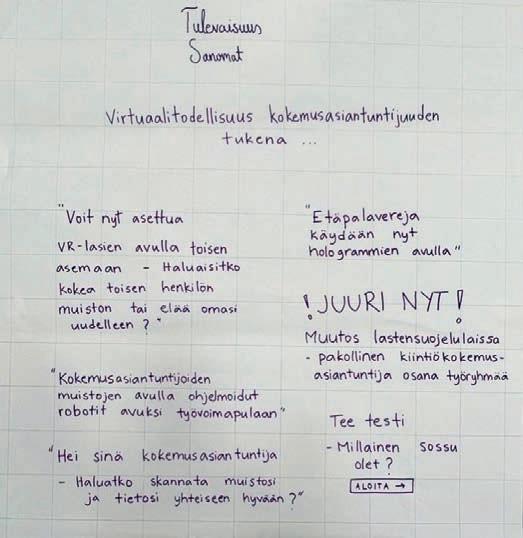 Tulevaisuus
Sanomat
Virtuaalitodellisuus kokemusasiantuntijuuden
tukena ...
"Voit nyt asettua
VR-lasien avulla toisen
asemaan - Haluaisitko
kokea toisen henkilön
muiston tai elää omasi
uudelleen?"
"Kokemusasiantuntijoiden
muistojen avulla ohjelmoidut
robotit avuksi työvoimapulaan"
"Hei sinä kokemusasiantuntija
- Haluatko skannata muistosi
ja tietosi yhteiseen hyvään?"
"Etäpalavereja
käydään nyt
hologrammien avulla"
! JUURI NYT !
Muutos lastensuojelulaissa
- pakollinen kiintiökokemus-
asiantuntija osana työryhmää
Tee testi
- Millainen sossu
olet?
ALOITA →